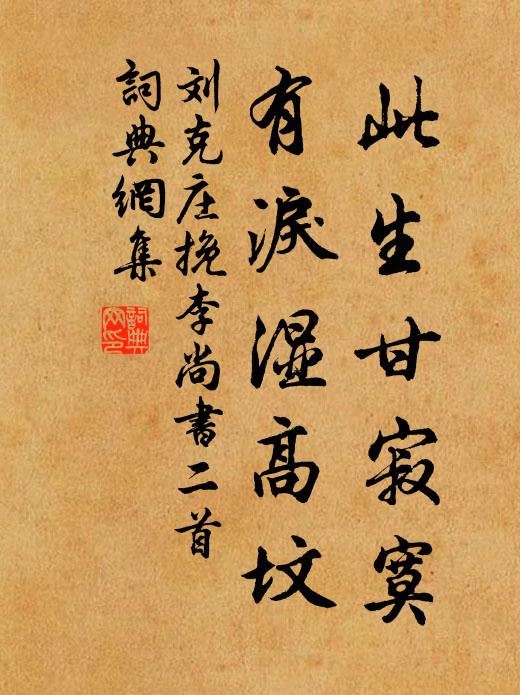 此生甘寂寞
有淚湿高坟
刘克庄挽李尚书二首
詞典網集
詞典網印